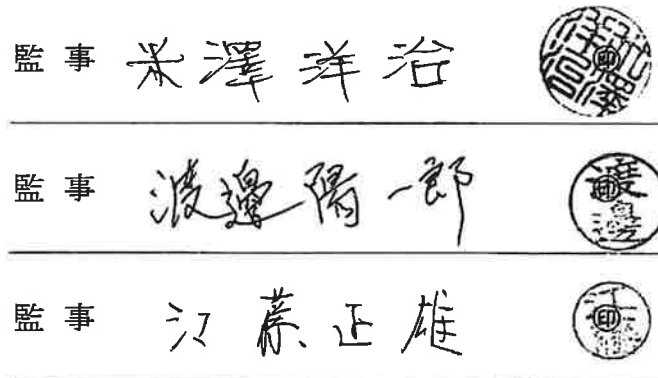 監事 米澤洋治 ㊞
監事 渡邉陽一郎 ㊞
監事 江藤正雄 ㊞